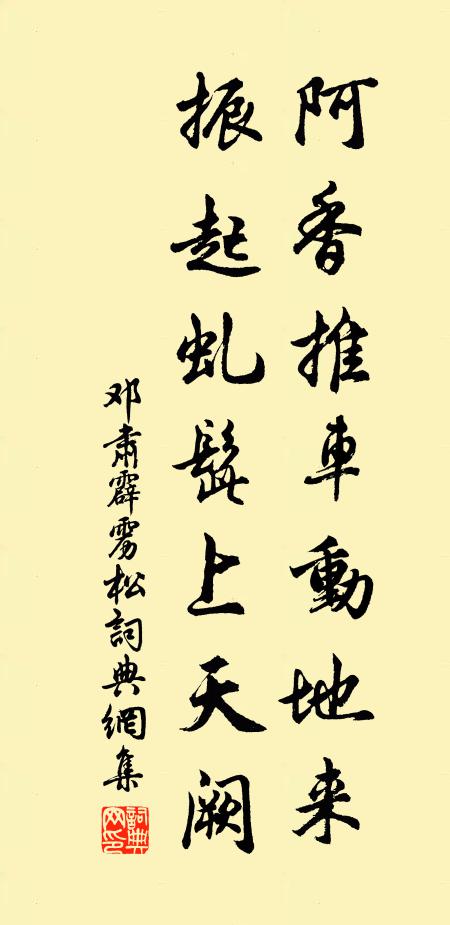 阿香推車動地来
振起虬髯上天阙
邓肅霹雳松詞典網集
詞典网印